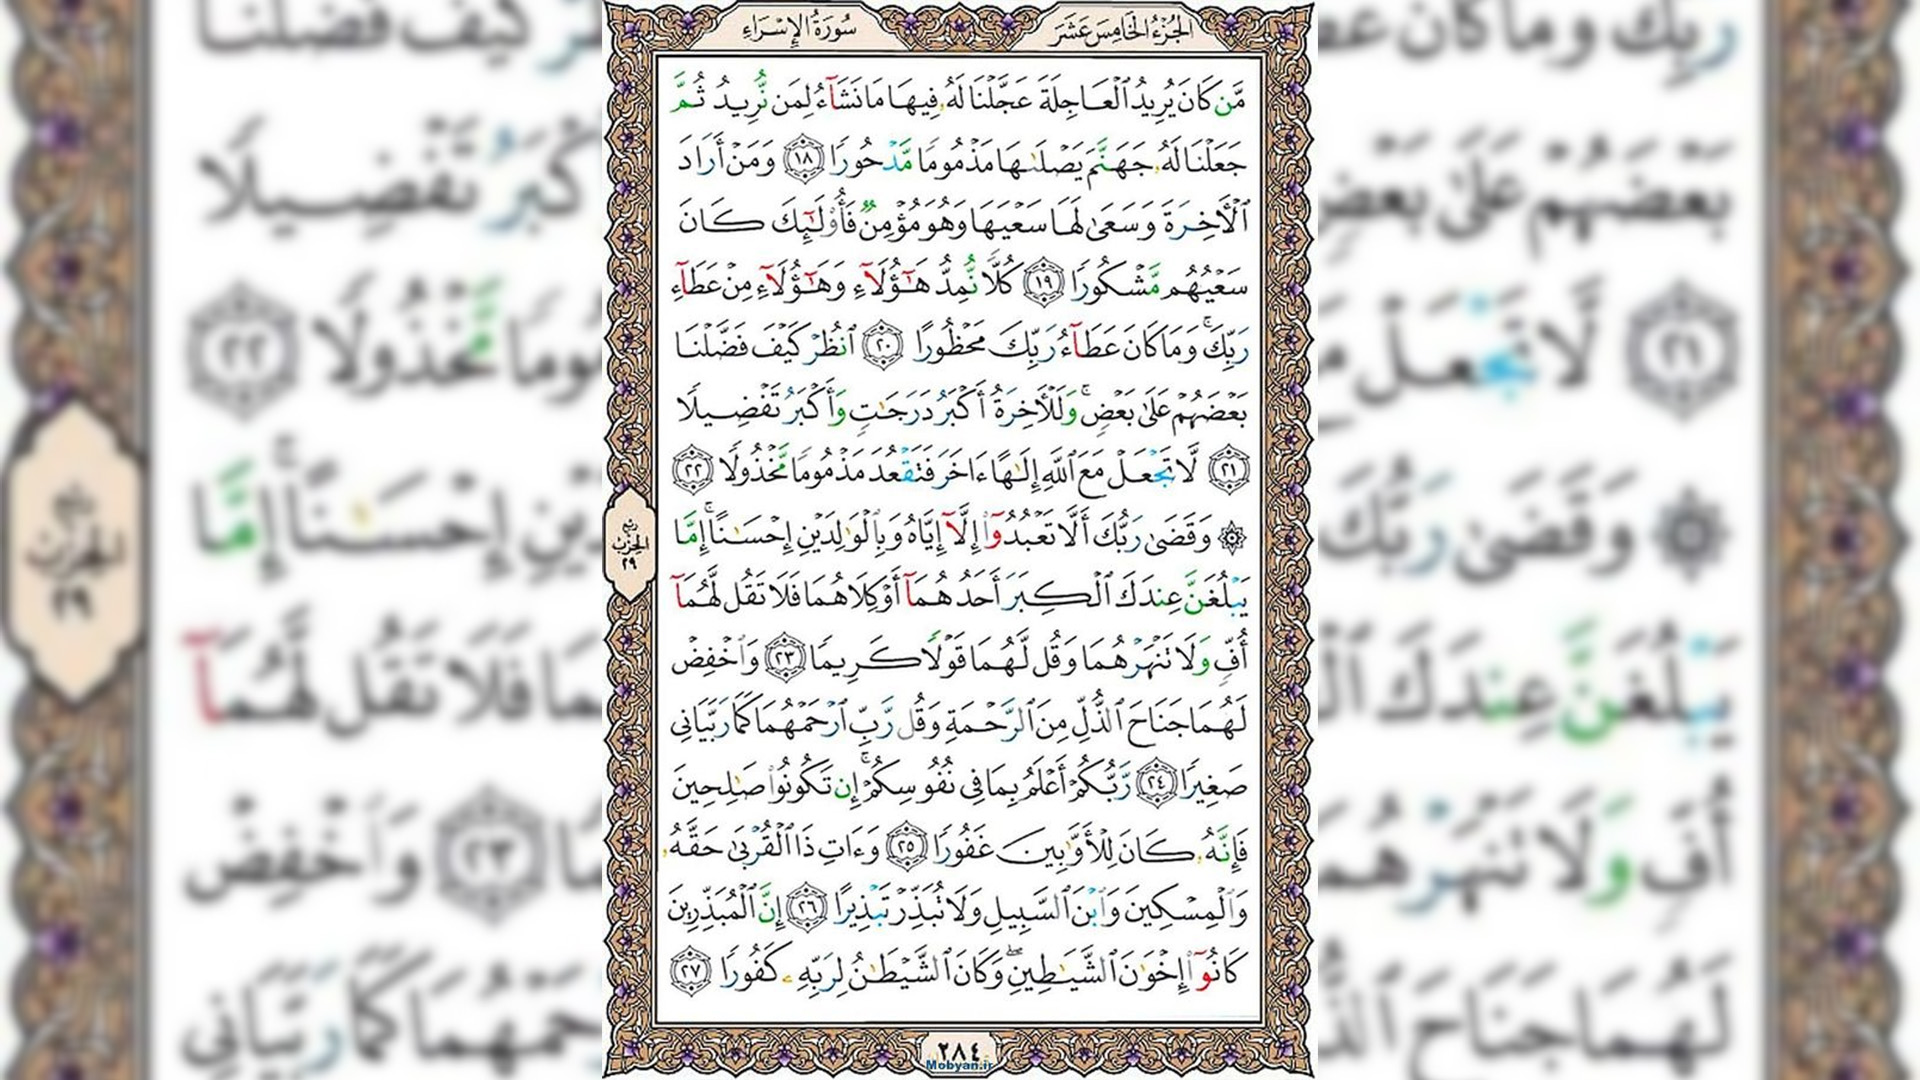 الجُزْءُ الخَامِسَ عَشَرَ
سُورَةُ الإِسْرَاءِ
مَّن كَانَ يُرِيدُ ٱلْعَاجِلَةَ عَجَّلْنَا لَهُۥ فِيهَا مَا نَشَآءُ لِمَن نُّرِيدُ ثُمَّ
جَعَلْنَا لَهُۥ جَهَنَّمَ يَصْلَىٰهَا مَذْمُومًا مَّدْحُورًا ١٨ وَمَنْ أَرَادَ
ٱلْأَخِرَةَ وَسَعَىٰ لَهَا سَعْيَهَا وَهُوَ مُؤْمِنٌ فَأُو۟لَٰٓئِكَ كَانَ
سَعْيُهُم مَّشْكُورًا ١٩ كُلًّا نُّمِدُّ هَٰٓؤُلَآءِ وَهَٰٓؤُلَآءِ مِنْ عَطَآءِ
رَبِّكَ ۚ وَمَا كَانَ عَطَآءُ رَبِّكَ مَحْظُورًا ٢٠ ٱنظُرْ كَيْفَ فَضَّلْنَا
بَعْضَهُمْ عَلَىٰ بَعْضٍ ۚ وَلَلْأَخِرَةُ أَكْبَرُ دَرَجَٰتٍ وَأَكْبَرُ تَفْضِيلًا
٢١ لَّا تَجْعَلْ مَعَ ٱللَّهِ إِلَٰهًا ءَاخَرَ فَتَقْعُدَ مَذْمُومًا مَّخْذُولًا ٢٢
۞ وَقَضَىٰ رَبُّكَ أَلَّا تَعْبُدُوٓا۟ إِلَّآ إِيَّاهُ وَبِٱلْوَٰلِدَيْنِ إِحْسَٰنًا ۚ إِمَّا
يَبْلُغَنَّ عِندَكَ ٱلْكِبَرَ أَحَدُهُمَآ أَوْ كِلَاهُمَا فَلَا تَقُل لَّهُمَآ
أُفٍّ وَلَا تَنْهَرْهُمَا وَقُل لَّهُمَا قَوْلًا كَرِيمًا ٢٣ وَٱخْفِضْ
لَهُمَا جَنَاحَ ٱلذُّلِّ مِنَ ٱلرَّحْمَةِ وَقُل رَّبِّ ٱرْحَمْهُمَا كَمَا رَبَّيَانِي
صَغِيرًا ٢٤ رَّبُّكُمْ أَعْلَمُ بِمَا فِي نُفُوسِكُمْ ۚ إِن تَكُونُوا۟ صَٰلِحِينَ
فَإِنَّهُۥ كَانَ لِلْأَوَّٰبِينَ غَفُورًا ٢٥ وَءَاتِ ذَا ٱلْقُرْبَىٰ حَقَّهُۥ
وَٱلْمِسْكِينَ وَٱبْنَ ٱلسَّبِيلِ وَلَا تُبَذِّرْ تَبْذِيرًا ٢٦ إِنَّ ٱلْمُبَذِّرِينَ
كَانُوٓا۟ إِخْوَٰنَ ٱلشَّيَٰطِينِ ۖ وَكَانَ ٱلشَّيْطَٰنُ لِرَبِّهِۦ كَفُورًا ٢٧
ربع
الحزب
٢٩
٢٨٤
Mobyan.ir